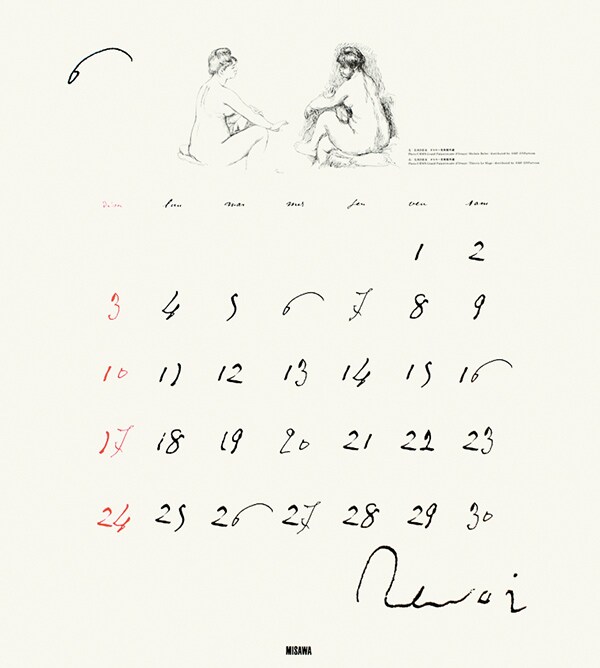 6
dim lun mar mer jeu ven sam
1 2
3 4 5 6 7 8 9
10 11 12 13 14 15 16
17 18 19 20 21 22 23
24 25 26 27 28 29 30
Renoir
MISAWA